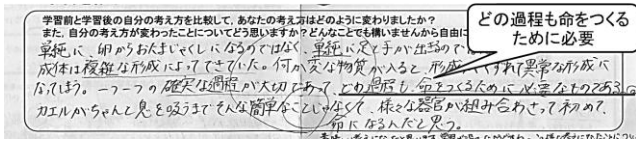 学習前と学習後の自分の考え方を比較して,あなたの考え方はどのように変わりましたか?
また,自分の考え方が変わったことについてどう思いますか?どんなことでも構いませんから自由に
どの過程も命をつくる
ために必要
単純に、卵からおたまじゃくしになるのではなく、単純に足と手が出るので
成体は複雑な形成によってできていた。何か変な物質が入ると、形成がくずれて異常な形成に
なってしまう。一つ一つの確実な過程が大切であって、どの過程も、命をつくるために必要なものである
カエルがちゃんと息を吸うまでそんな簡単なことじゃなくて、様々な器官が組み合わさって初めて、
命になるんだと思う。